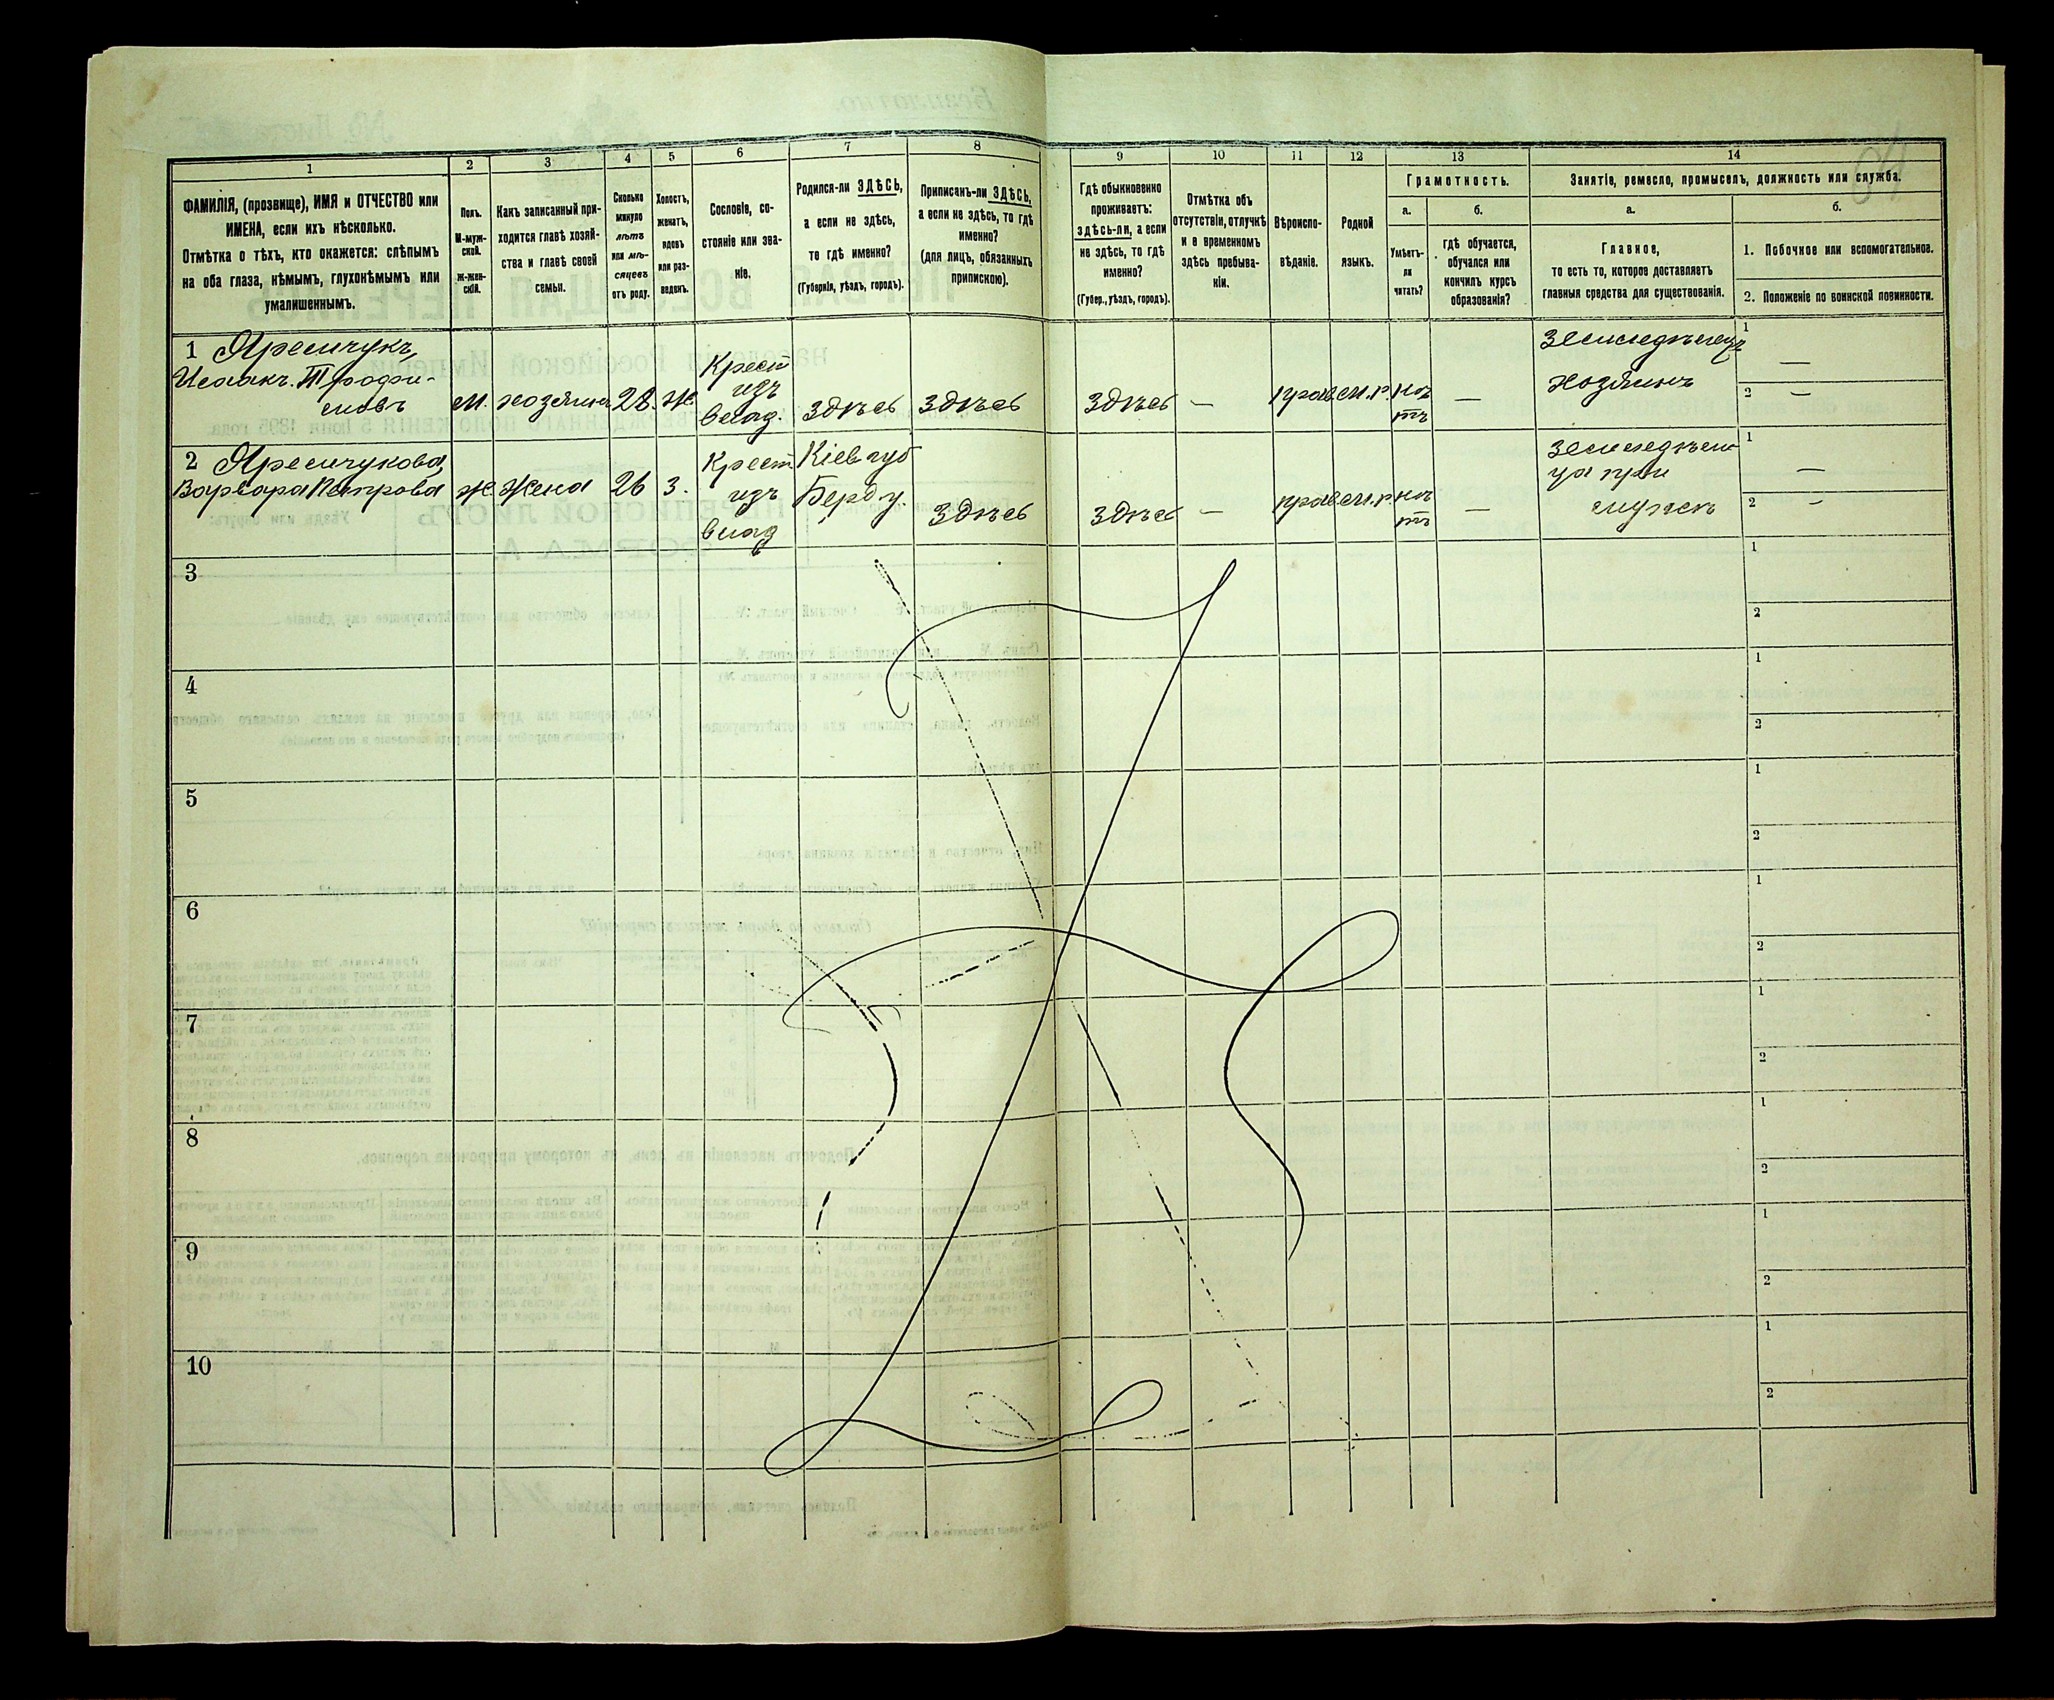 1 2 3 4 5 6 7 8 9 10 11 12 13 14
ФАМИЛІЯ, (прозвище), ИМЯ и ОТЧЕСТВО или
ИМЕНА, если ихъ нѣсколько.
Отмѣтка о тѣхъ, кто окажется: слѣпымъ
на оба глаза, нѣмымъ, глухонѣмымъ или
умалишеннымъ.
Полъ.
М-муж-
ской.
Ж-жен-
скій.
Какъ записанный при-
ходится главѣ хозяй-
ства и главѣ своей
семьи.
Сколько
минуло
лѣтъ
или мѣ-
сяцевъ
отъ роду.
Холостъ,
женатъ,
вдовъ
или раз-
веденъ.
Сословіе, со-
стояніе или зва-
ніе.
Родился-ли ЗДѢСЬ,
а если не здѣсь,
то гдѣ именно?
(Губернія, уѣздъ, городъ).
Приписанъ-ли ЗДѢСЬ,
а если не здѣсь, то гдѣ
именно?
(для лицъ, обязанныхъ
припискою).
Гдѣ обыкновенно
проживаетъ:
здѣсь-ли, а если
не здѣсь, то гдѣ
именно?
(Губер., уѣздъ, городъ).
Отмѣтка объ
отсутствіи, отлучкѣ
и о временномъ
здѣсь пребыва-
ніи.
Вѣроиспо-
вѣданіе.
Родной
языкъ.
Грамотность.
а.
Умѣетъ-
ли
читать?
б.
гдѣ обучается,
обучался или
кончилъ курсъ
образованія?
Занятіе, ремесло, промыселъ, должность или служба.
а.
Главное,
то есть то, которое доставляетъ
главныя средства для существованія.
б.
1. Побочное или вспомогательное.
2. Положеніе по воинской повинности.
1 Яремчукъ
Исаакъ Трофи-
мовъ
м.
хозяинъ
28
ж.
Крест
изъ
влад.
здѣсь
здѣсь
здѣсь
—
прав
м.р.
нѣ
тъ
—
Земледѣлецъ
хозяинъ
1 —
2 —
2 Яремчукова
Варвара Петрова
ж.
жена
26
з.
Крест
изъ
влад
Кіев губ
Берд у.
здѣсь
здѣсь
—
прав
м.р.
нѣ
тъ
—
Земледѣли-
ца при
мужѣ
1 —
2 —
3
1
2
4
1
2
5
1
2
6
1
2
7
1
2
8
1
2
9
1
2
10
1
2